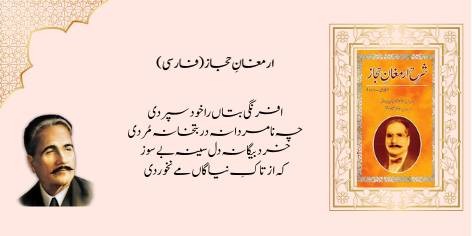 ارمغانِ حجاز (فارسی)
افرنگی بتاں را خود سپردی
چہ نامردانہ در بتخانہ مُردی
خرد بیگانہ دل سینہ بے سوز
کہ از تاک نیاگاں مے نخوردی
شرح ارمغان حجاز